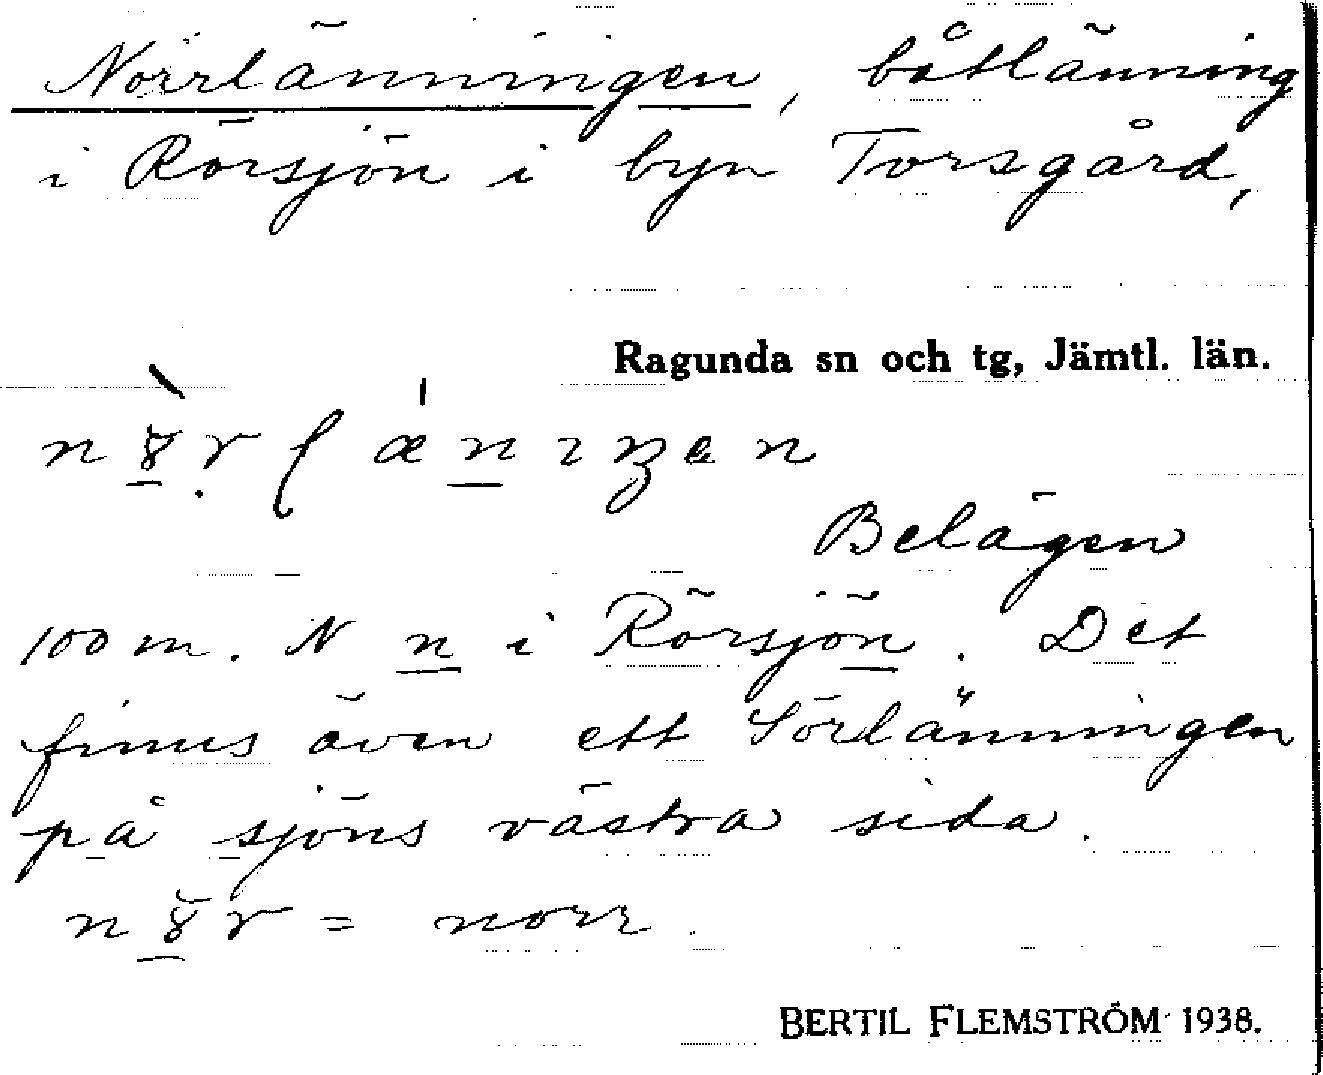 Norrlänningen, båtlänning
i Rörsjön i byn Torsgård,
Ragunda sn och tg, Jämtl. län.
Belägen
100 m. N n i Rörsjön. Det
finns även ett Sörlänningen
på sjöns västra sida.
= norr.
BERTIL FLEMSTRÖM 1938.